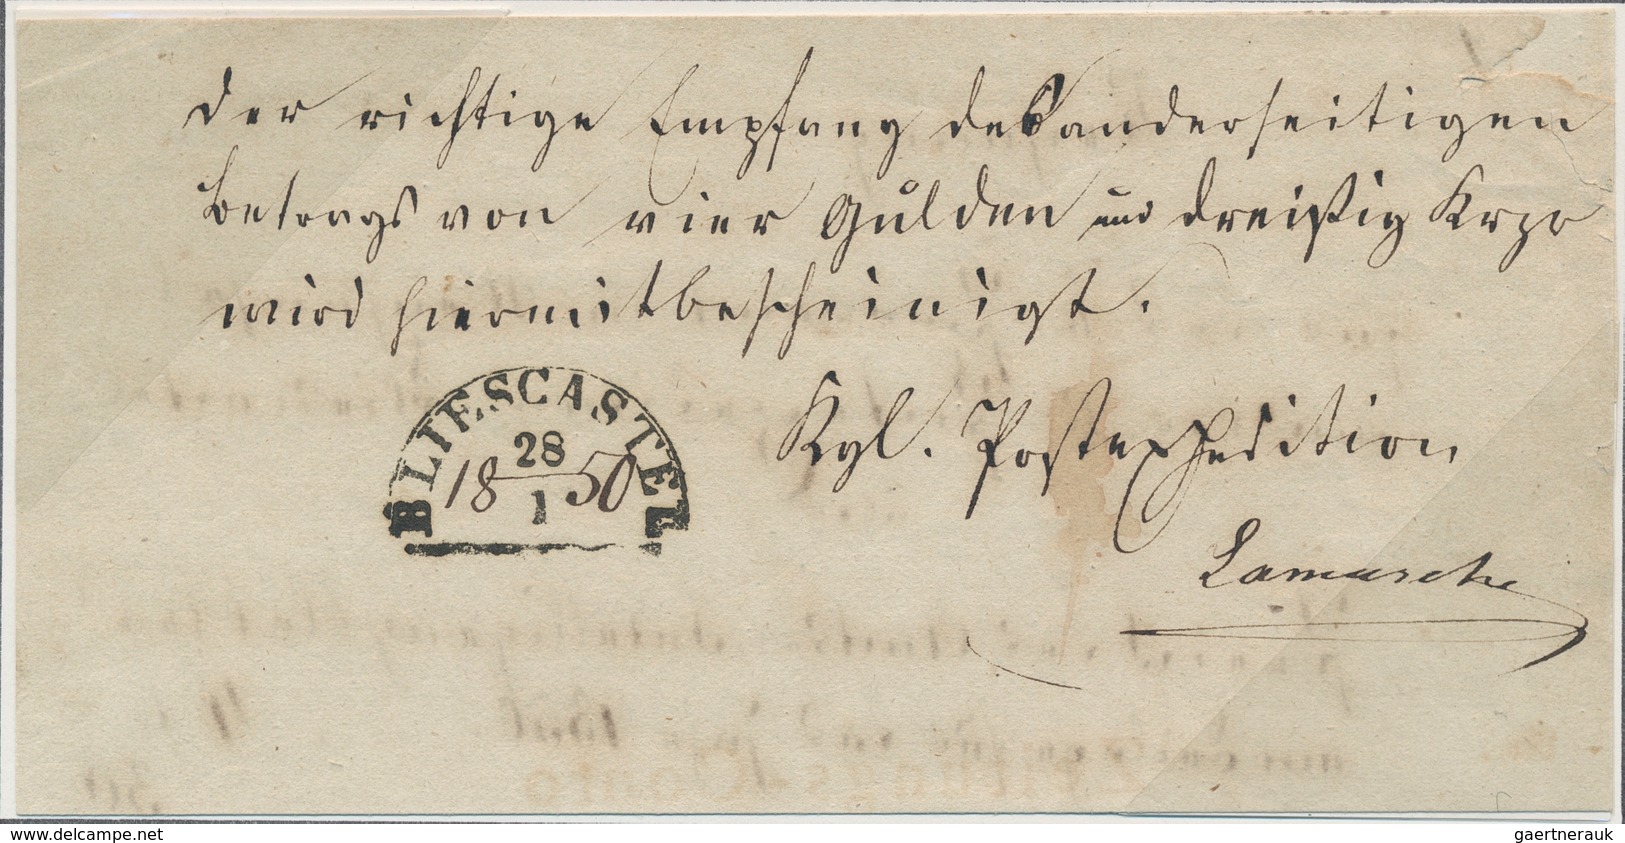 Der richtige Empfang des anderseitigen
Betrags von vier Gulden und dreißig Krzr
wird hiermit bescheinigt.
BLIESCASTEL
28
18 50
1
Kgl. Postexpedition
delcampe.net
gaertnerauk